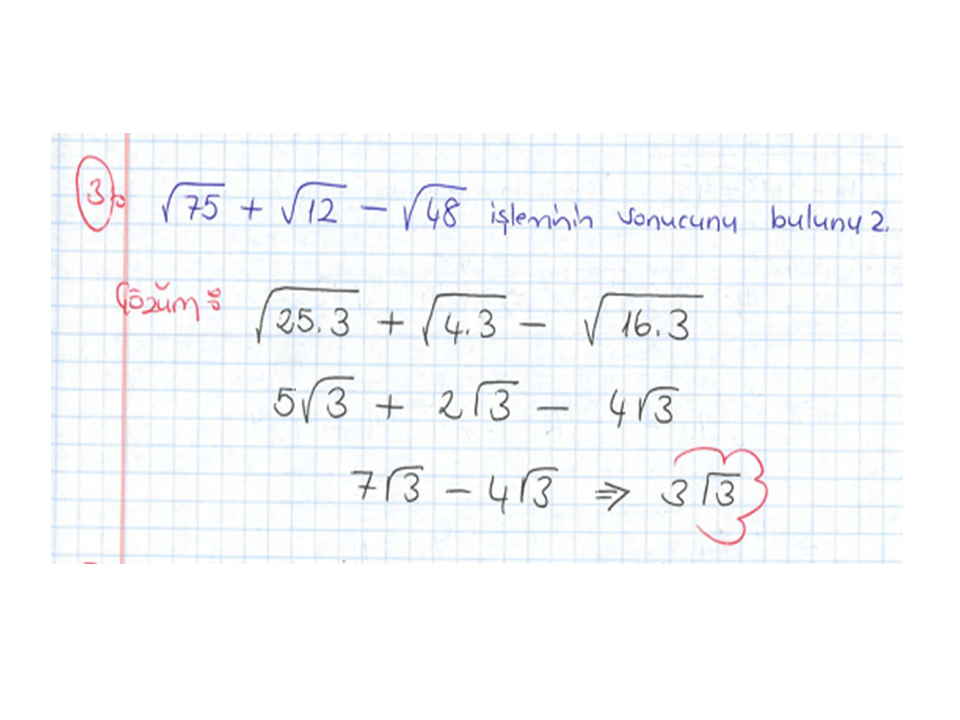 3) √75 + √12 − √48 işleminin sonucunu bulunuz.
Çözüm: √25.3 + √4.3 − √16.3
5√3 + 2√3 − 4√3
7√3 − 4√3 ⇒ 3√3